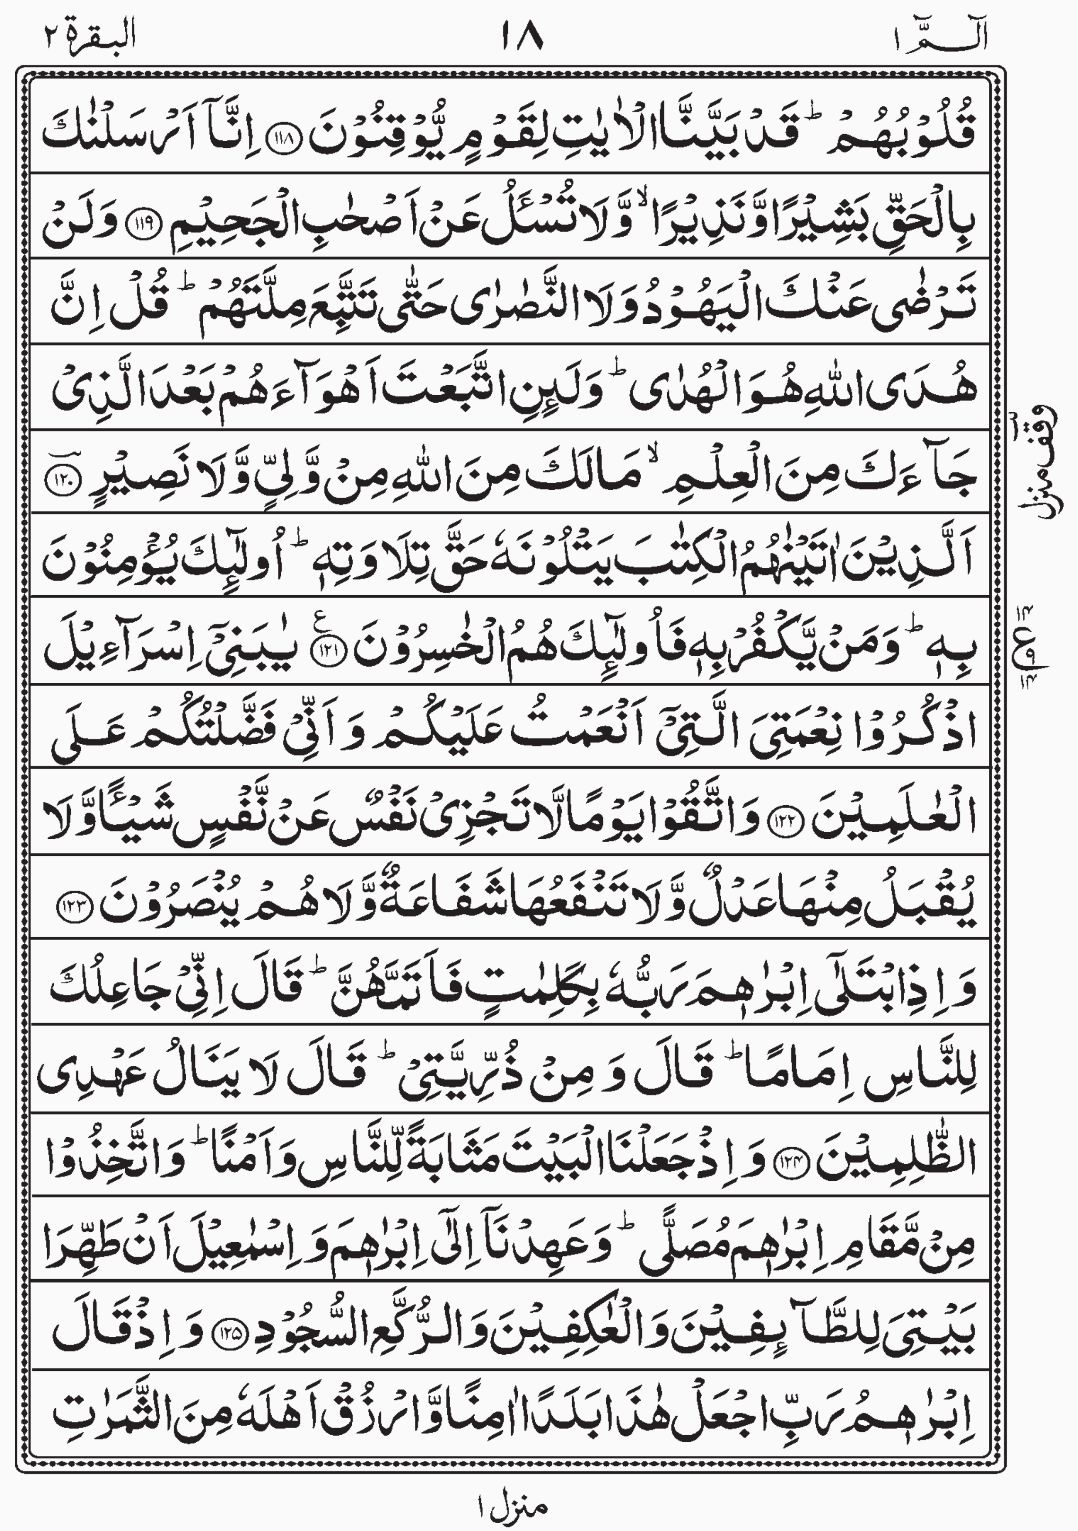 الٓـمّٓ ١
١٨
البقرة ٢
قُلُوْبُهُمْ ؕ قَدْ بَيَّنَّا الْاٰيٰتِ لِقَوْمٍ يُّوْقِنُوْنَ ﴿۱۱۸﴾ اِنَّاۤ اَرْسَلْنٰكَ
بِالْحَقِّ بَشِيْرًا وَّنَذِيْرًا ۙ وَّلَا تُسْـَٔلُ عَنْ اَصْحٰبِ الْجَحِيْمِ ﴿۱۱۹﴾ وَلَنْ
تَرْضٰى عَنْكَ الْيَهُوْدُ وَلَا النَّصٰرٰى حَتّٰى تَتَّبِعَ مِلَّتَهُمْ ؕ قُلْ اِنَّ
هُدَى اللّٰهِ هُوَ الْهُدٰى ؕ وَلَىِٕنِ اتَّبَعْتَ اَهْوَآءَهُمْ بَعْدَ الَّذِىْ
جَآءَكَ مِنَ الْعِلْمِ ۙ مَا لَكَ مِنَ اللّٰهِ مِنْ وَّلِىٍّ وَّلَا نَصِيْرٍ ﴿۱۲۰﴾
اَلَّذِيْنَ اٰتَيْنٰهُمُ الْكِتٰبَ يَتْلُوْنَهٗ حَقَّ تِلَاوَتِهٖ ؕ اُولٰٓىِٕكَ يُؤْمِنُوْنَ
بِهٖ ؕ وَمَنْ يَّكْفُرْ بِهٖ فَاُولٰٓىِٕكَ هُمُ الْخٰسِرُوْنَ ﴿۱۲۱﴾ ع يٰبَنِىْۤ اِسْرَآءِيْلَ
اذْكُرُوْا نِعْمَتِىَ الَّتِىْۤ اَنْعَمْتُ عَلَيْكُمْ وَاَنِّىْ فَضَّلْتُكُمْ عَلَى
الْعٰلَمِيْنَ ﴿۱۲۲﴾ وَاتَّقُوْا يَوْمًا لَّا تَجْزِىْ نَفْسٌ عَنْ نَّفْسٍ شَيْـًٔا وَّلَا
يُقْبَلُ مِنْهَا عَدْلٌ وَّلَا تَنْفَعُهَا شَفَاعَةٌ وَّلَا هُمْ يُنْصَرُوْنَ ﴿۱۲۳﴾
وَاِذِ ابْتَلٰٓى اِبْرٰهٖمَ رَبُّهٗ بِكَلِمٰتٍ فَاَتَمَّهُنَّ ؕ قَالَ اِنِّىْ جَاعِلُكَ
لِلنَّاسِ اِمَامًا ؕ قَالَ وَمِنْ ذُرِّيَّتِىْ ؕ قَالَ لَا يَنَالُ عَهْدِى
الظّٰلِمِيْنَ ﴿۱۲۴﴾ وَاِذْ جَعَلْنَا الْبَيْتَ مَثَابَةً لِّلنَّاسِ وَاَمْنًا ؕ وَاتَّخِذُوْا
مِنْ مَّقَامِ اِبْرٰهٖمَ مُصَلًّى ؕ وَعَهِدْنَاۤ اِلٰٓى اِبْرٰهٖمَ وَاِسْمٰعِيْلَ اَنْ طَهِّرَا
بَيْتِىَ لِلطَّآىِٕفِيْنَ وَالْعٰكِفِيْنَ وَالرُّكَّعِ السُّجُوْدِ ﴿۱۲۵﴾ وَاِذْ قَالَ
اِبْرٰهٖمُ رَبِّ اجْعَلْ هٰذَا بَلَدًا اٰمِنًا وَّارْزُقْ اَهْلَهٗ مِنَ الثَّمَرٰتِ
وقف منزل
١٤
ع ٩
١٤
منزل ١